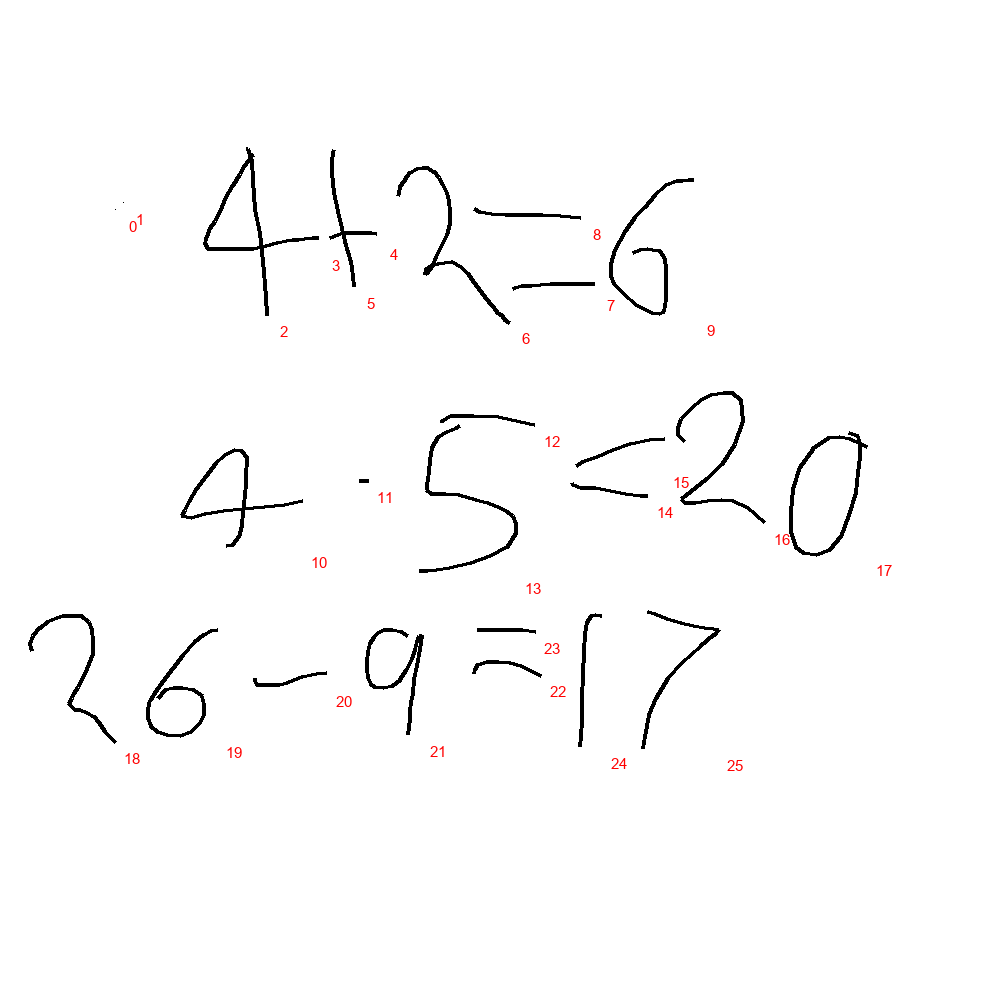 4+2=6
0 1 2 3 4 5 6 7 8 9
4·5=20
10 11 12 13 14 15 16 17
26-9=17
18 19 20 21 22 23 24 25